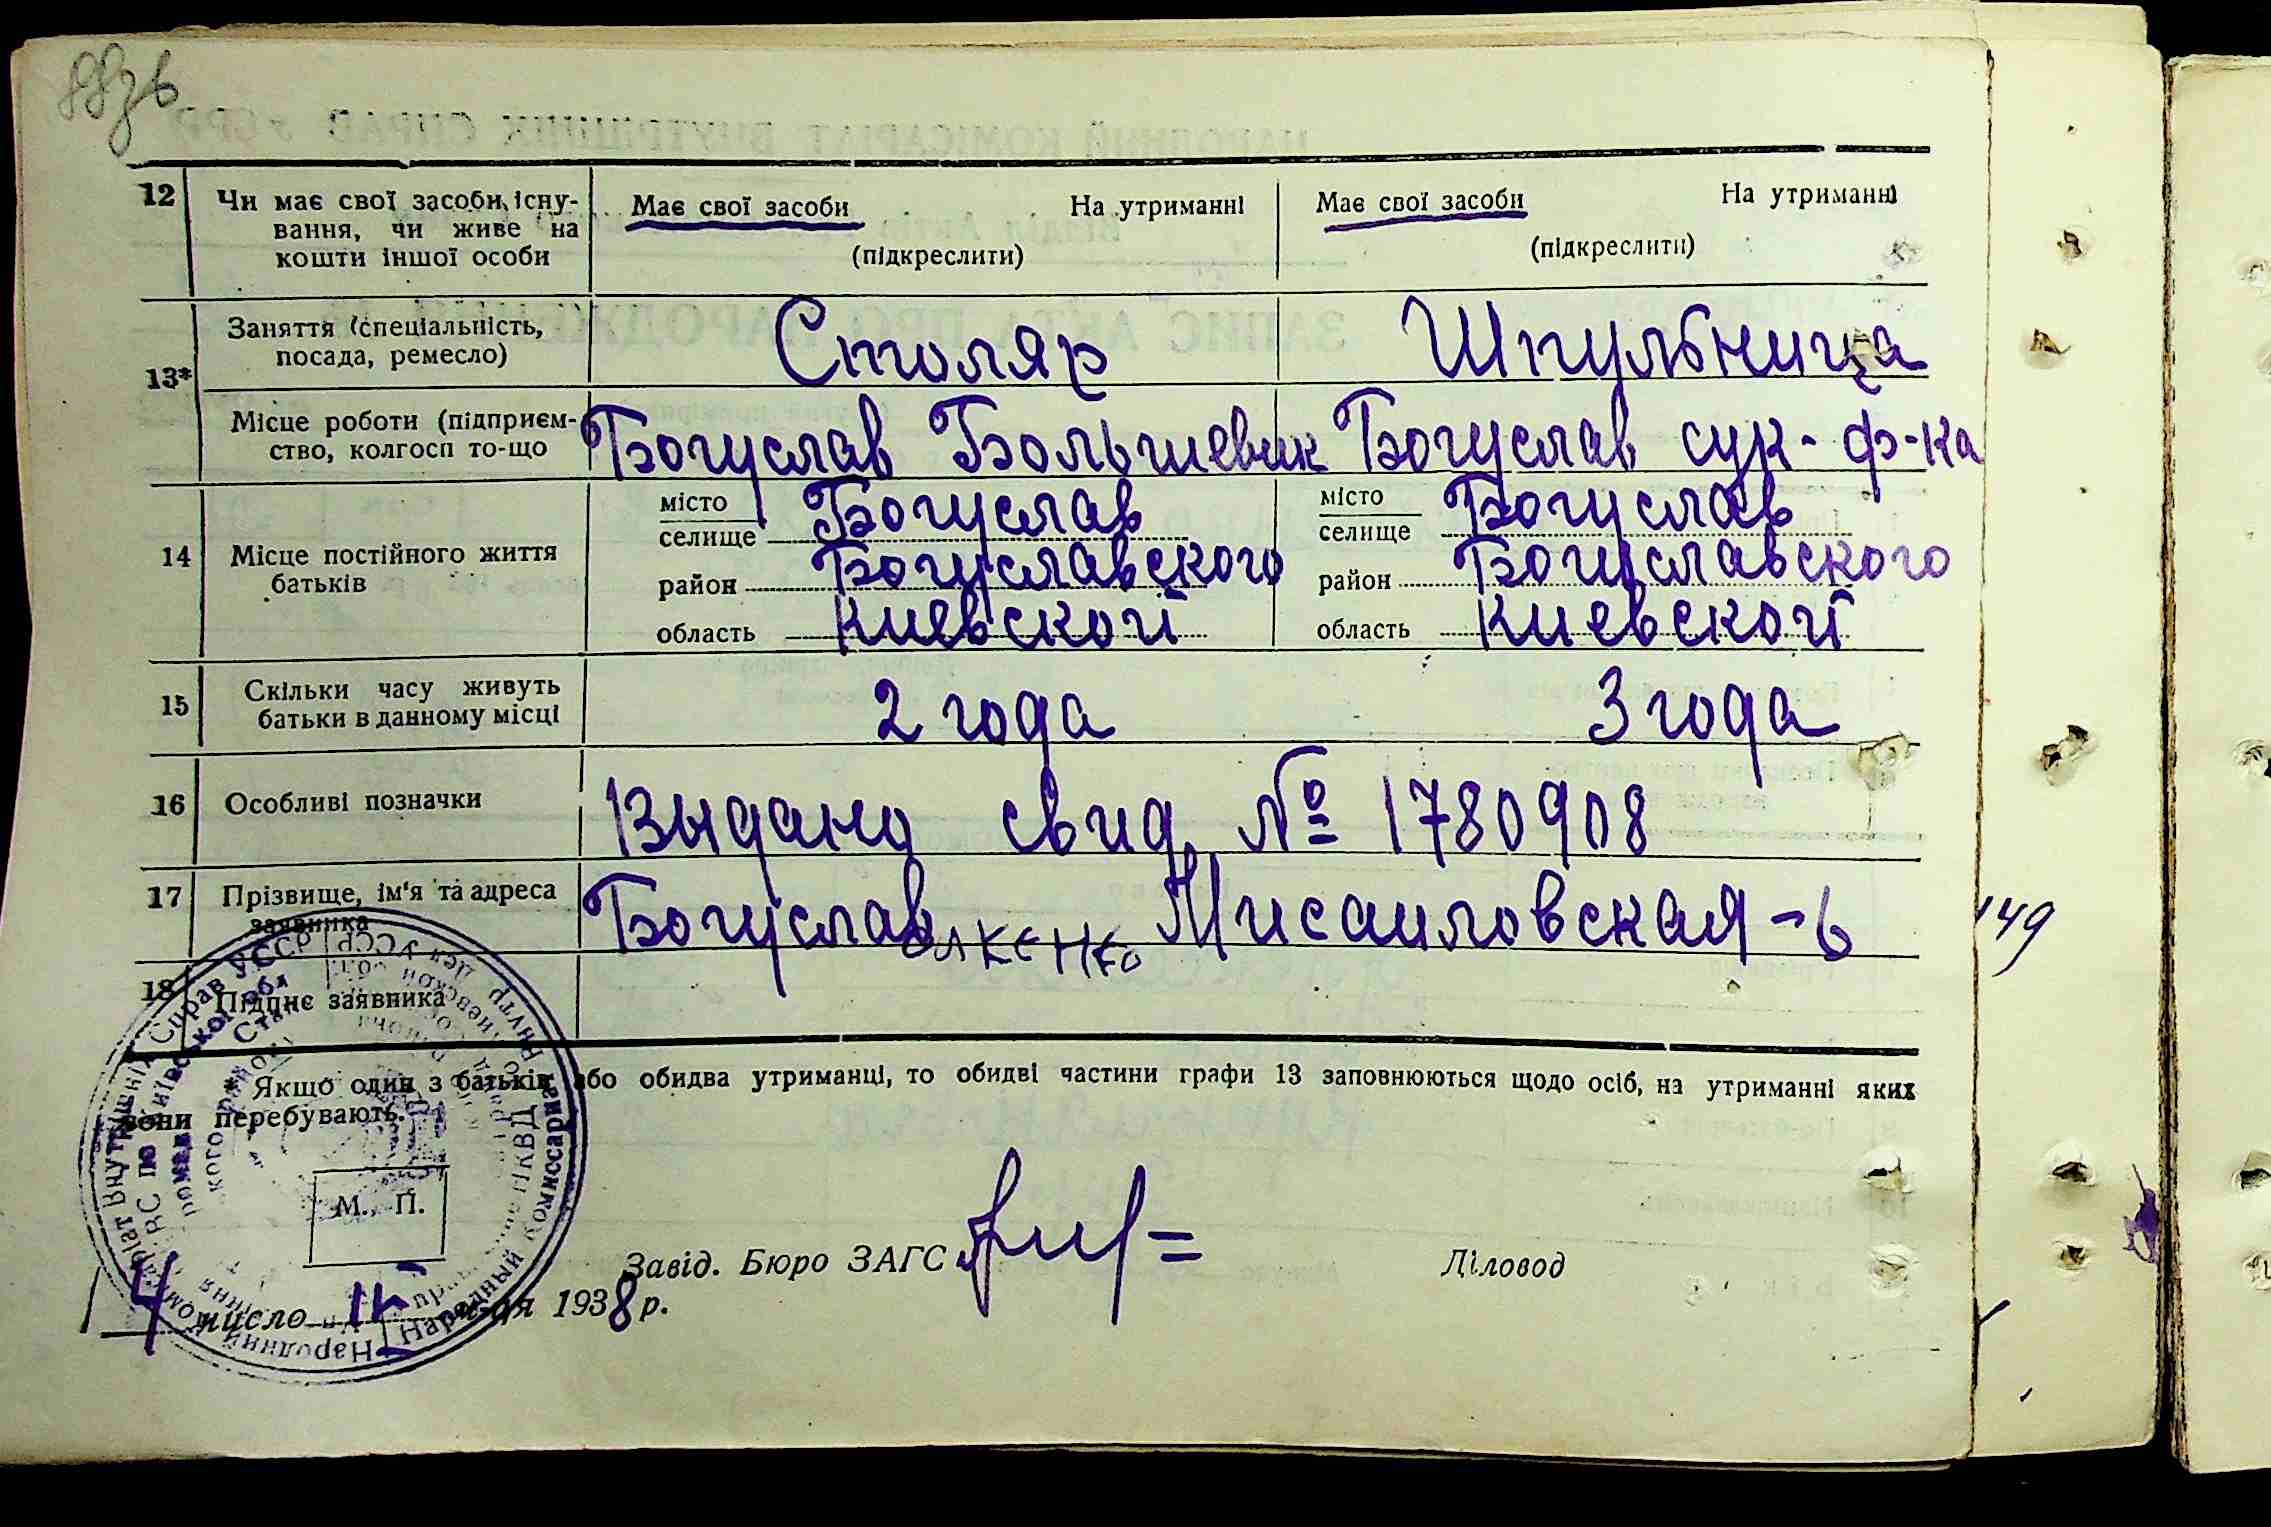 88зв
12 Чи має свої засоби існу-
вання, чи живе на
кошти іншої особи
Має свої засоби На утриманні
(підкреслити)
Має свої засоби На утриманні
(підкреслити)
13*
Заняття (спеціальність,
посада, ремесло)
Столяр
Шпульница
Місце роботи (підприєм-
ство, колгосп то-що
Богуслав Большевик
Богуслав сук-ф-ка
14 Місце постійного життя
батьків
місто
селище Богуслав
район Богуславского
область Киевской
місто
селище Богуслав
район Богуславского
область Киевской
15 Скільки часу живуть
батьки в данному місці
2 года
3 года
16 Особливі позначки
Выдано свид. № 1780908
17 Прізвище, ім'я та адреса
заявника
Богуслав Мисаиловская-6
18 Підпис заявника
149
* Якщо один з батьків або обидва утриманці, то обидві частини графи 13 заповнюються щодо осіб, на утриманні яких
вони перебувають.
М. П.
Завід. Бюро ЗАГС
Діловод
4 число м-ця 1938 р.